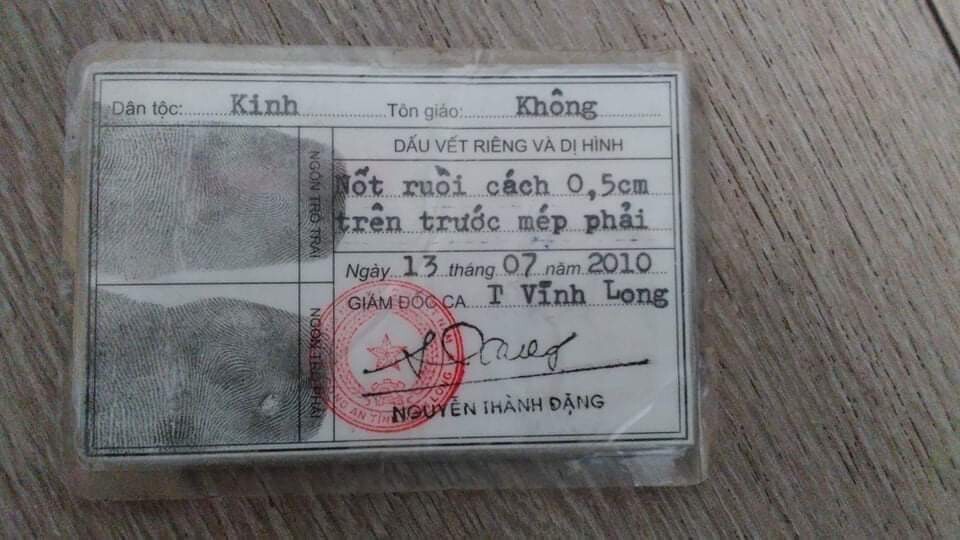 Dân tộc: Kinh Tôn giáo: Không
DẤU VẾT RIÊNG VÀ DỊ HÌNH
NGÓN TRỎ TRÁI
Nốt ruồi cách 0,5cm
trên trước mép phải
Ngày 13 tháng 07 năm 2010
GIÁM ĐỐC CA T Vĩnh Long
NGÓN TRỎ PHẢI
NGUYỄN THÀNH ĐẶNG